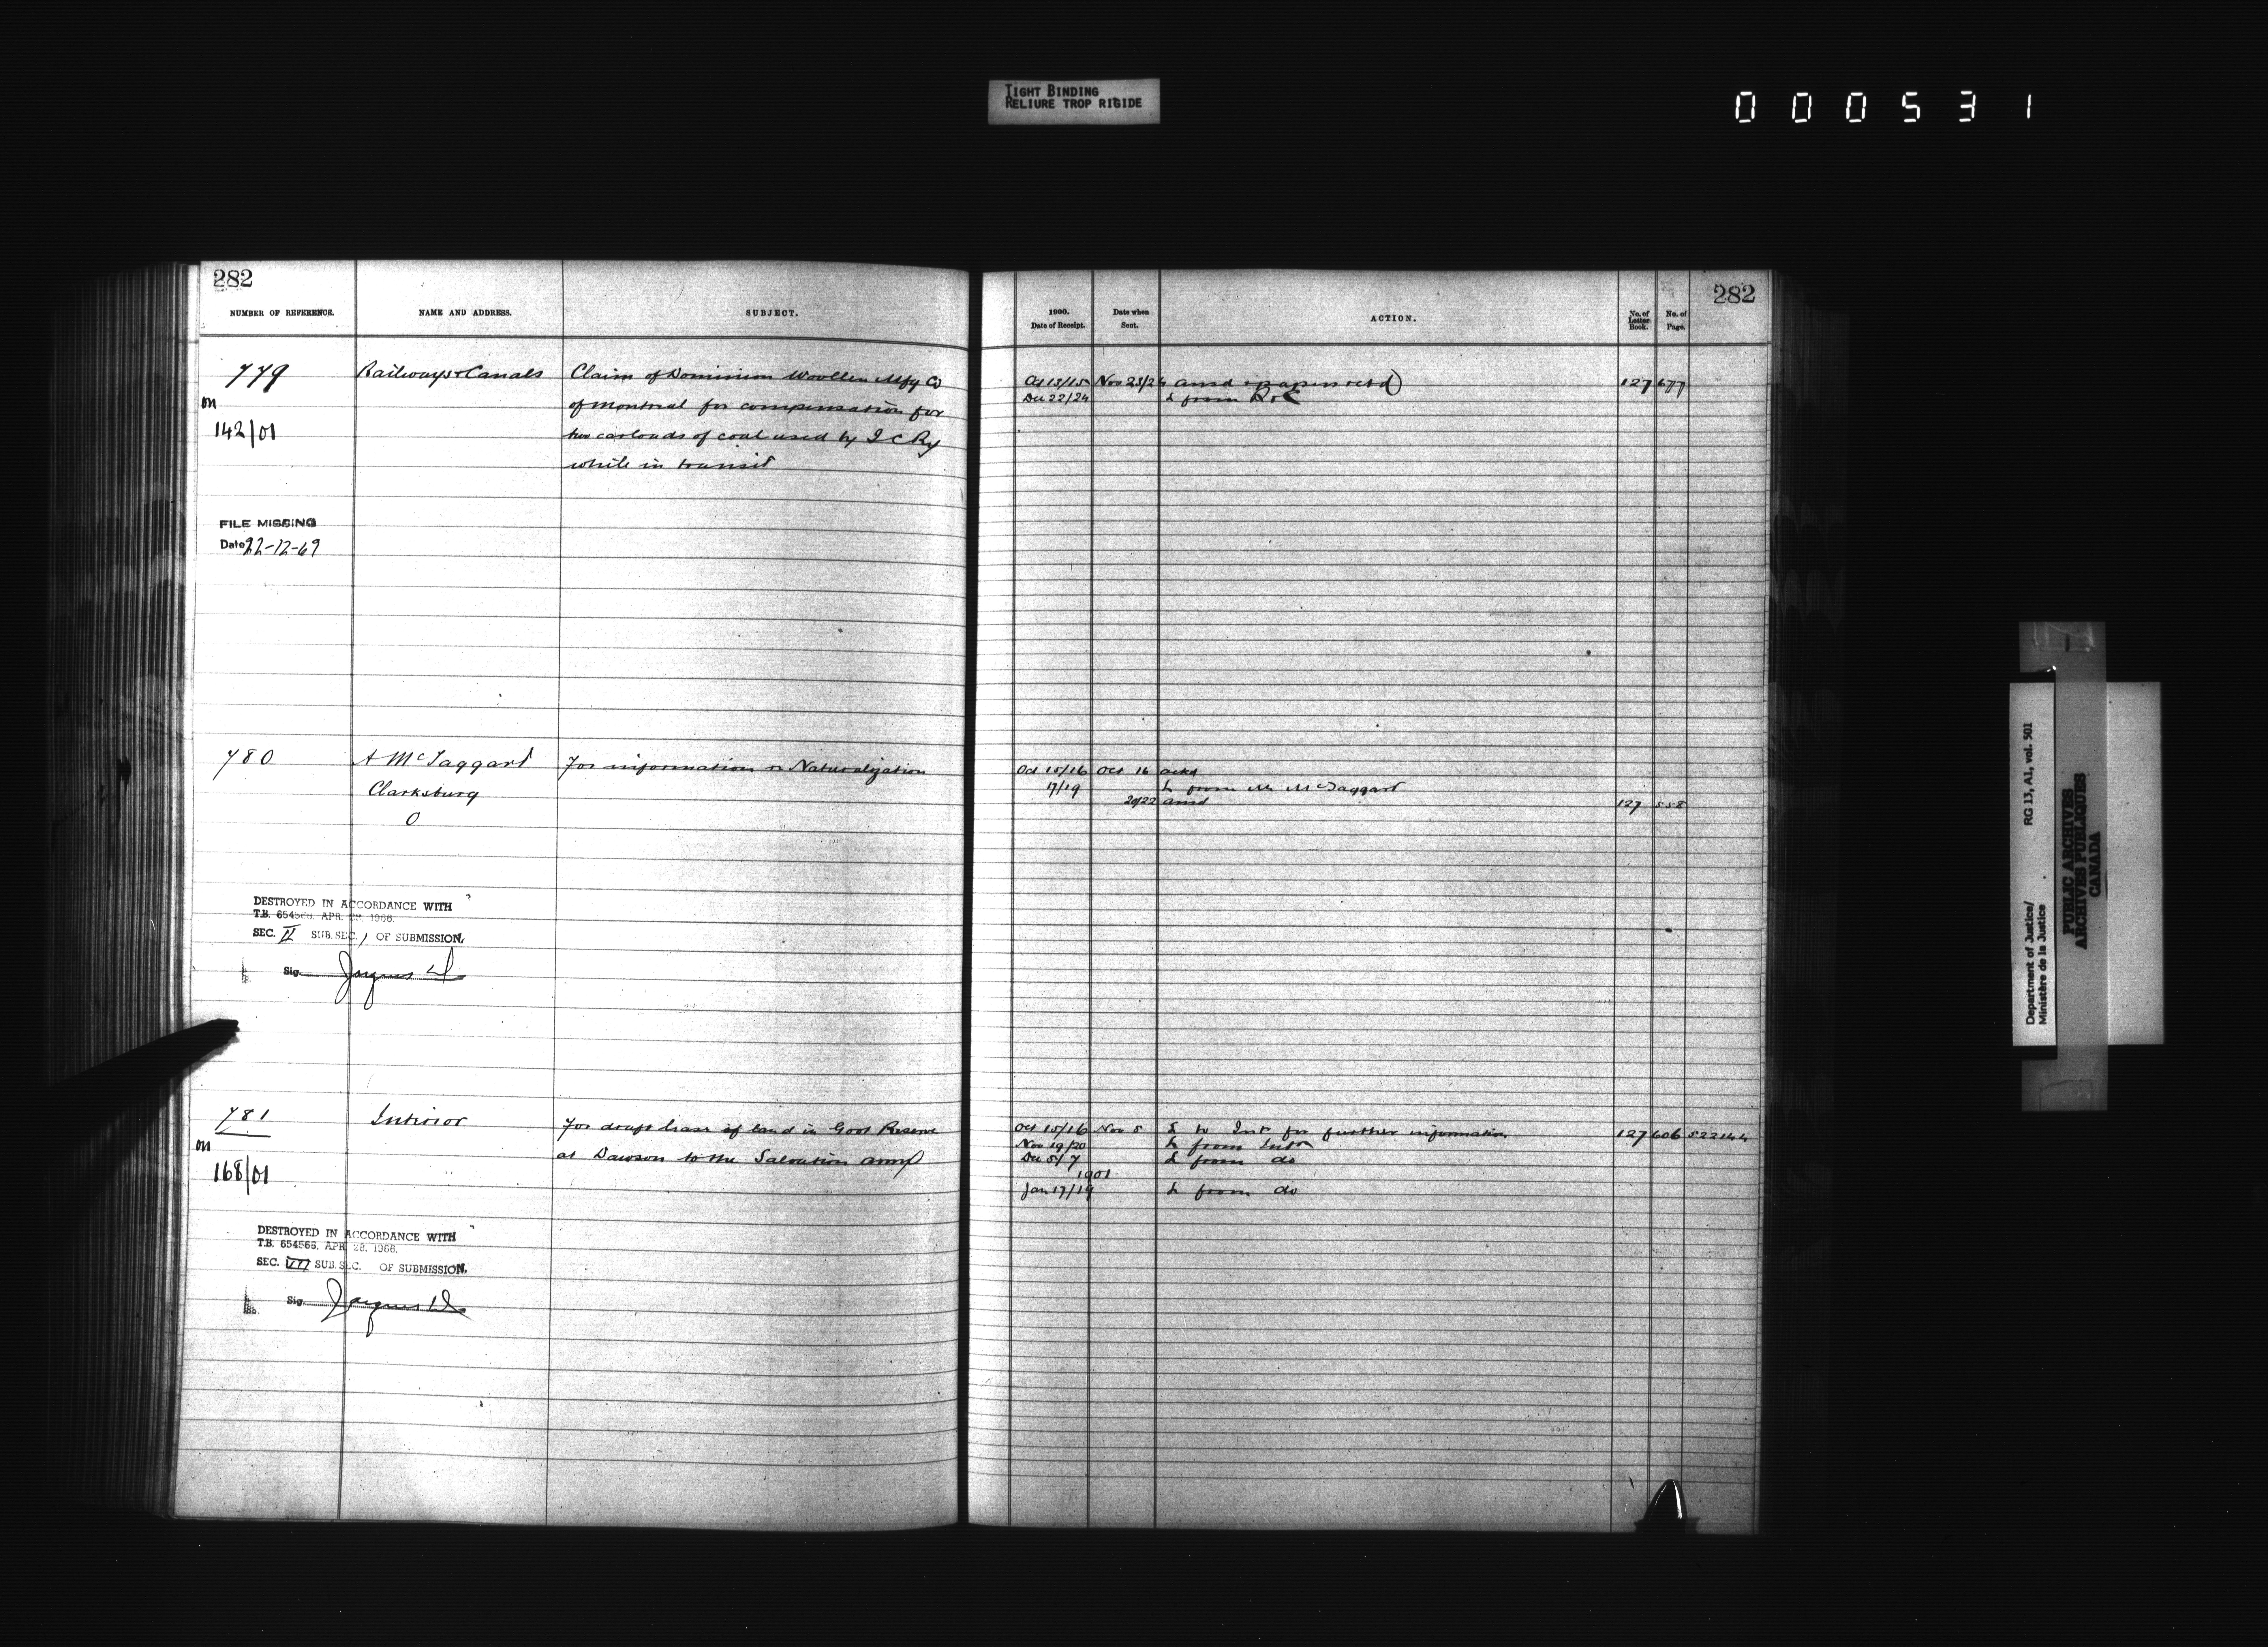 TIGHT BINDING
RELIURE TROP RIGIDE
000531
282
NUMBER OF REFERENCE. NAME AND ADDRESS. SUBJECT.
779 Railways & Canals Claim of Dominion Woollen Mfg Co
on of Montreal for compensation for
142/01 two carloads of coal used by I C Ry
while in transit
FILE MISSING
Date 22-12-69
780 A McTaggart For information re Naturalization
Clarksburg
O
DESTROYED IN ACCORDANCE WITH
T.B. 654566. APR. 28. 1966.
SEC. II SUB. SEC. 1 OF SUBMISSION.
Sig.
781 Interior For draft lease of land in Govt Reserve
on at Dawson to the Salvation Army
168/01
DESTROYED IN ACCORDANCE WITH
T.B. 654566. APR. 28. 1966.
SEC. VII SUB. SEC. OF SUBMISSION.
Sig.
282
1900. Date of Receipt. Date when Sent. ACTION. No. of Letter Book. No. of Page.
Oct 13/15 Nov 23/26 ansd & papers retd 127 677
Dec 22/24 L from R & C
Oct 15/16 Oct 16 ackd
17/19 L from Mr McTaggart
20/22 ansd 127 558
Oct 15/16 Nov 5 L to Intr for further information 127 606 522144
Nov 19/20 L from Intr
Dec 5/7 L from do
1901
Jan 17/19 L from do
Department of Justice/ RG 13, A1, vol. 501
Ministère de la Justice
PUBLIC ARCHIVES
ARCHIVES PUBLIQUES
CANADA